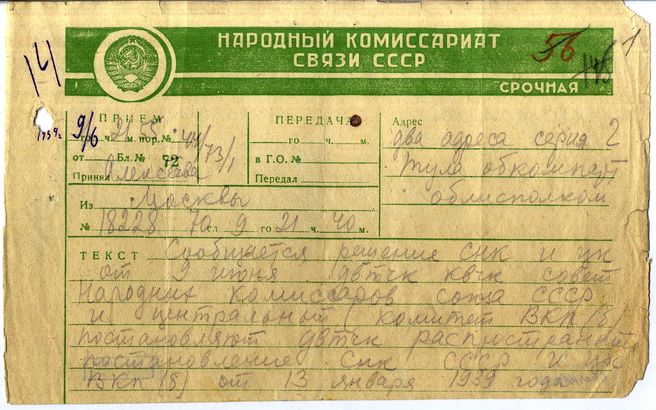 НАРОДНЫЙ КОМИССАРИАТ
СВЯЗИ СССР
СРОЧНАЯ
14
56
1
ПРИЕМ
9/6 го 21 ч. 55 м. пор. №
от Бл. № 72 73/1
Принял Алексеева
ПЕРЕДАЧА
го ч. м.
в Г.О. №
Передал
Адрес
два адреса серия 2
Тула обкомпарт
облисполком
Из Москвы
№ 18228 70 сл 9 го 21 ч 40 м.
ТЕКСТ Сообщается решение СНК и цк
от 9 июня двтчк квчк совет
Народних комиссаров союза СССР
и центральный комитет ВКП /б/
постановляют двтчк распространит
постановление СНК СССР и цк
ВКП /б/ от 13 января 1939 года